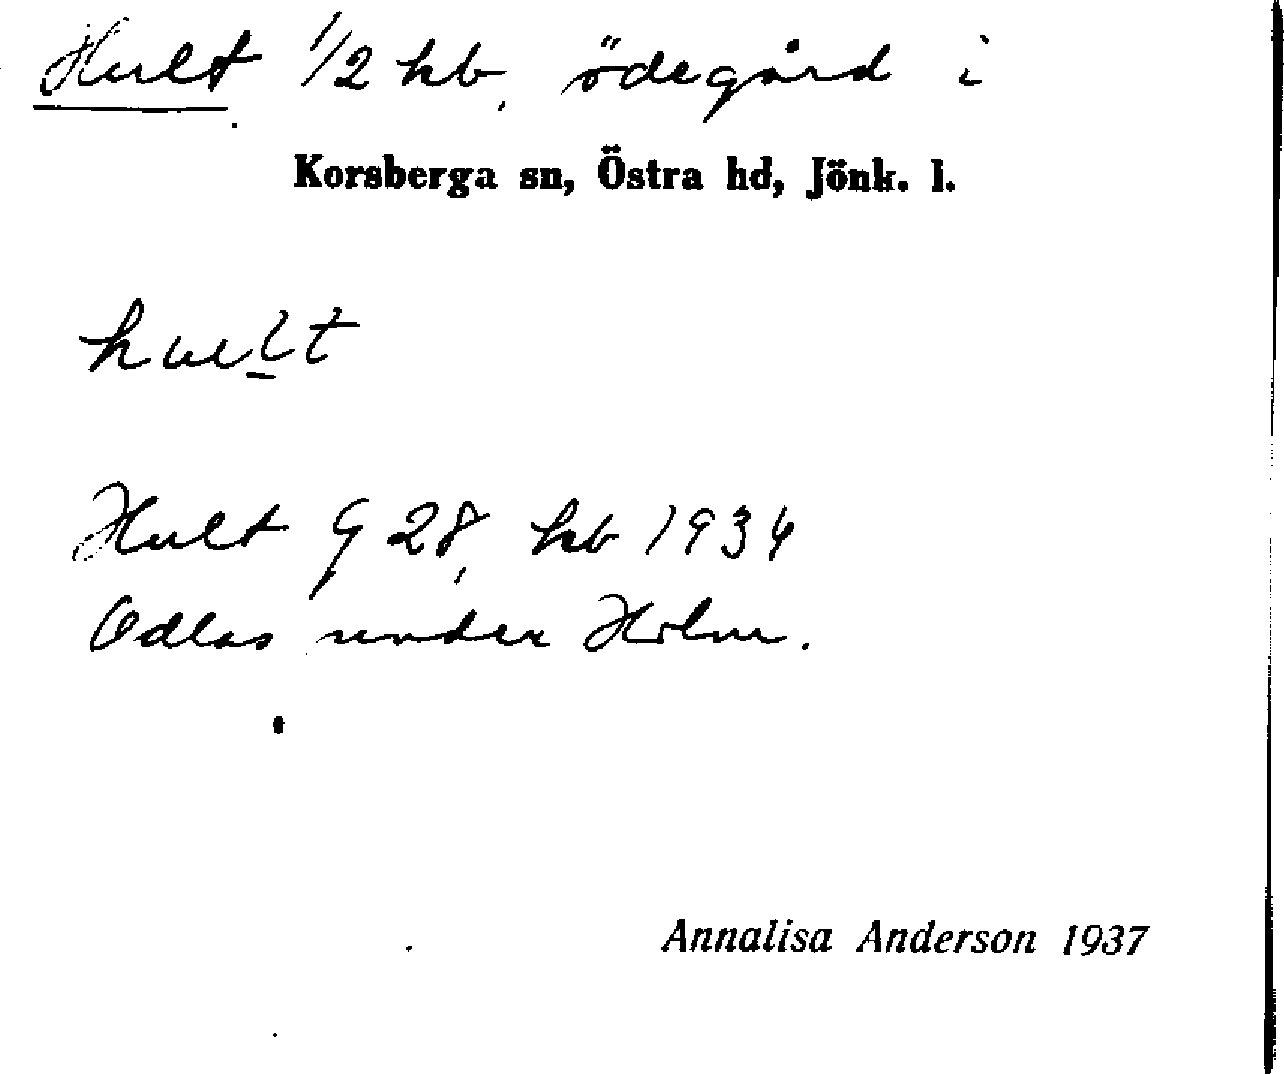 Hult 1/2 hb, ödegård i
Korsberga sn, Östra hd, Jönk. l.
hult
Hult 9 28, hb 1934
Odlas under Holm.
Annalisa Anderson 1937